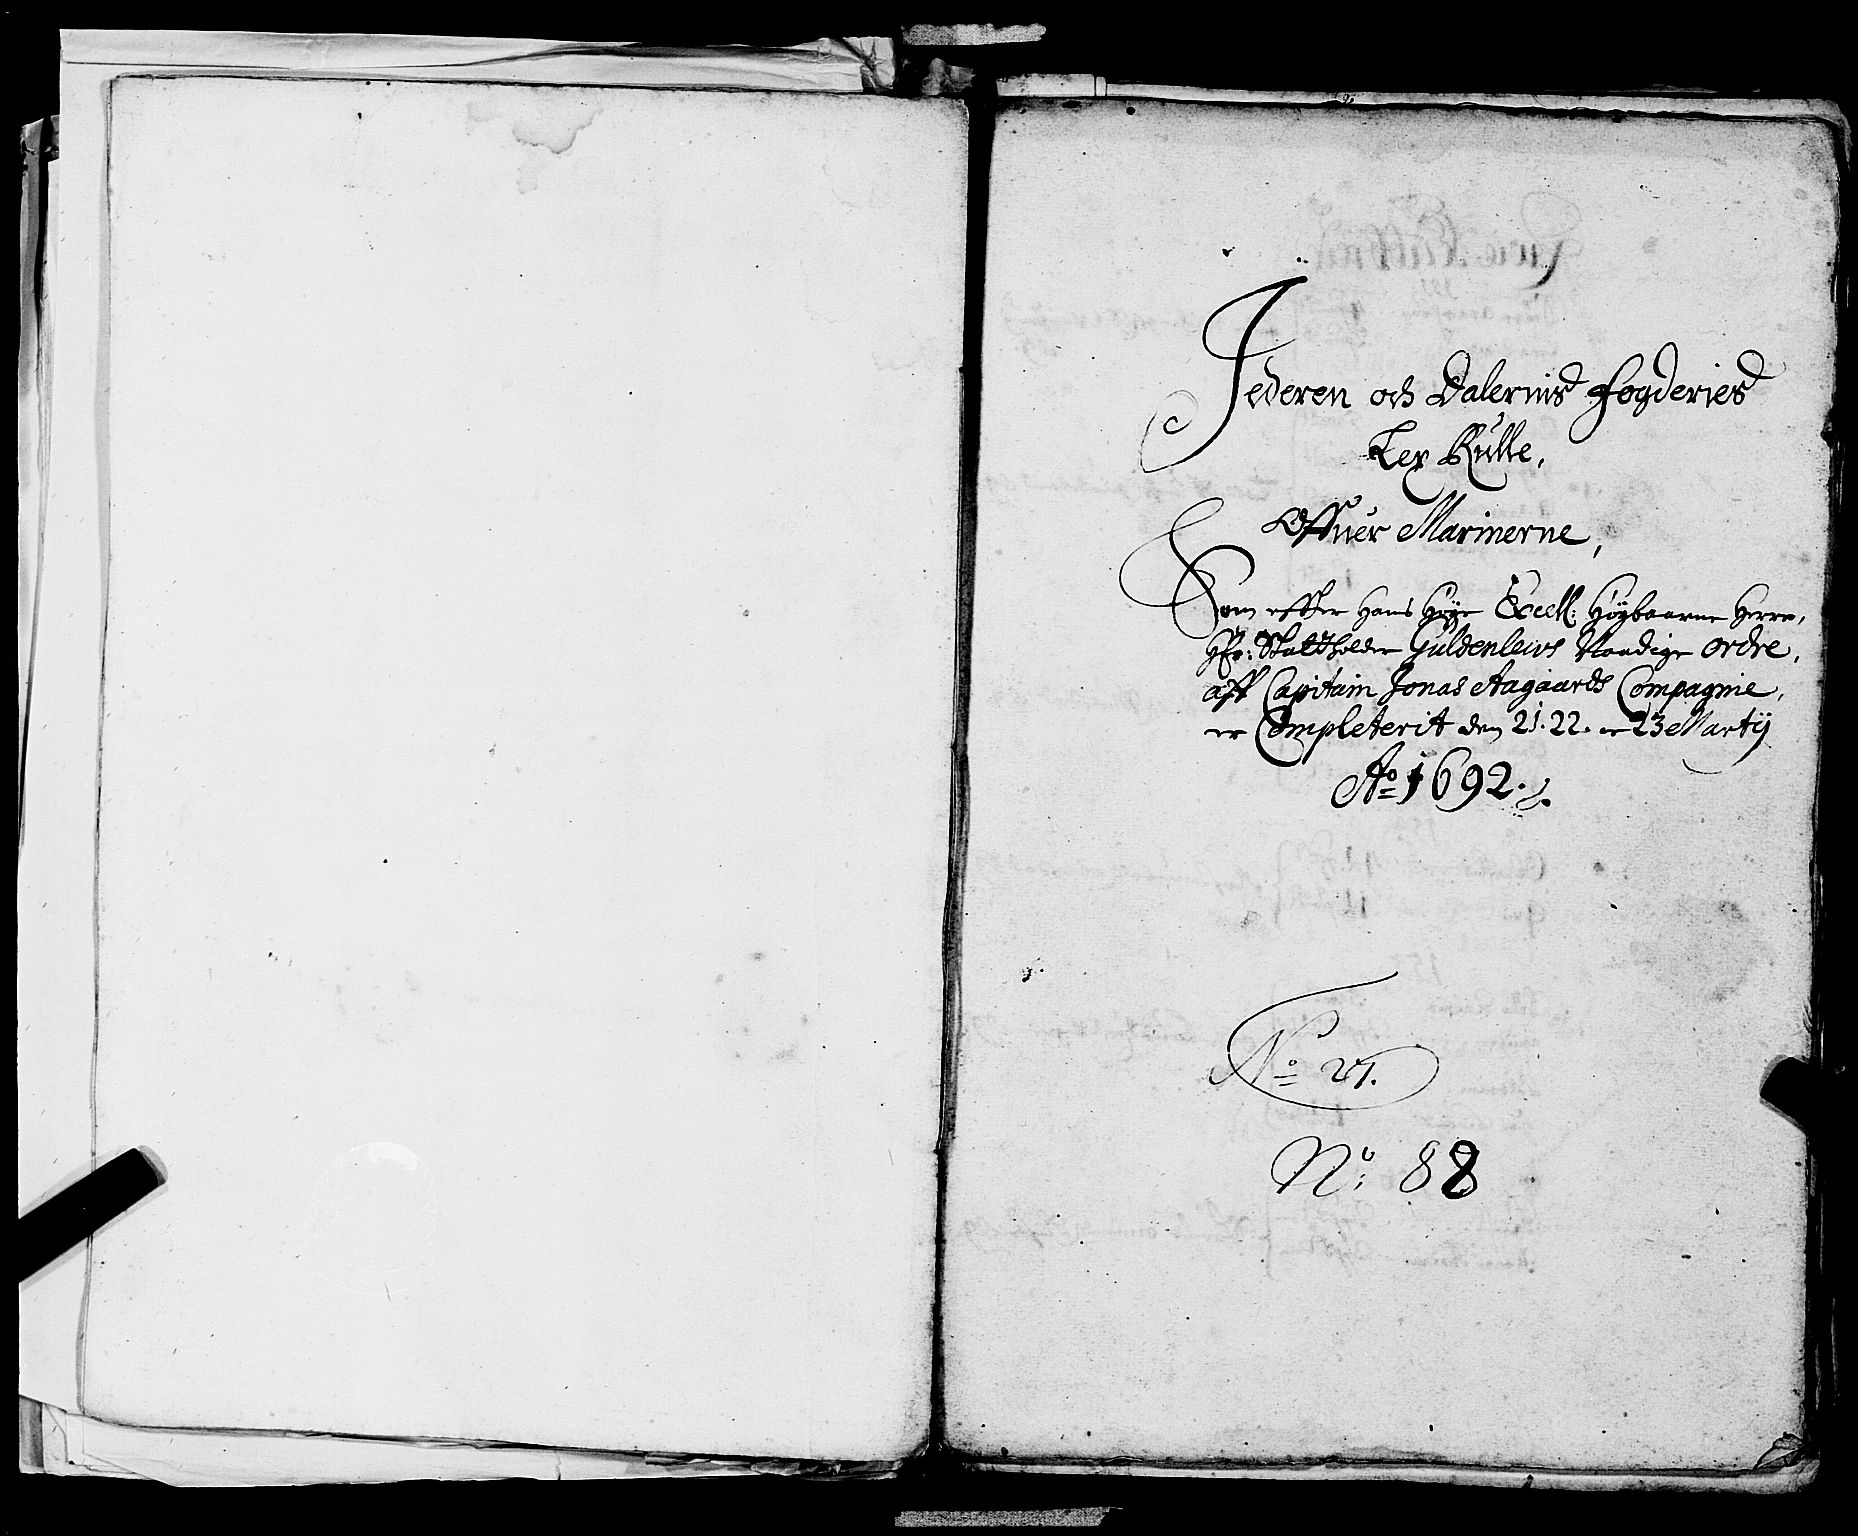 Jederen och Dalernis Fogderies
Lex Rulle,
Offuer Marinerne,
Som effter Hans Høye Excell: Høybaarne Herre,
Hr: Stattholder Guldenlews Naadige ordre,
aff Capitain Jonas Aagaards Compagnie,
er Completerit den 21. 22. er 23 Martij
Ao 1692.
No 27.
No: 88